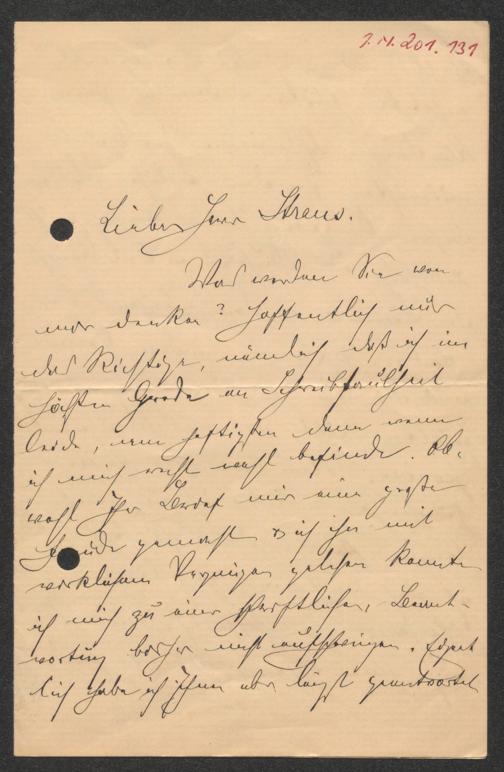 I.N. 201.131
Lieber Herr Straus.
Was werden Sie von
mir denken? Hoffentlich nur
das Richtige, nämlich daß ich im
höchsten Grade an Schreibfaulheit
leide, am heftigsten dann wenn
ich mich recht wohl befinde. Ob-
wohl Ihr Brief mir eine große
Freude gemacht & ich ihn mit
wirklichem Vergnügen gelesen konnte
ich mich zu einer schriftlichen, Beant-
wortung bisher nicht aufschwingen.
lich habe ich Ihnen aber längst geantwortet